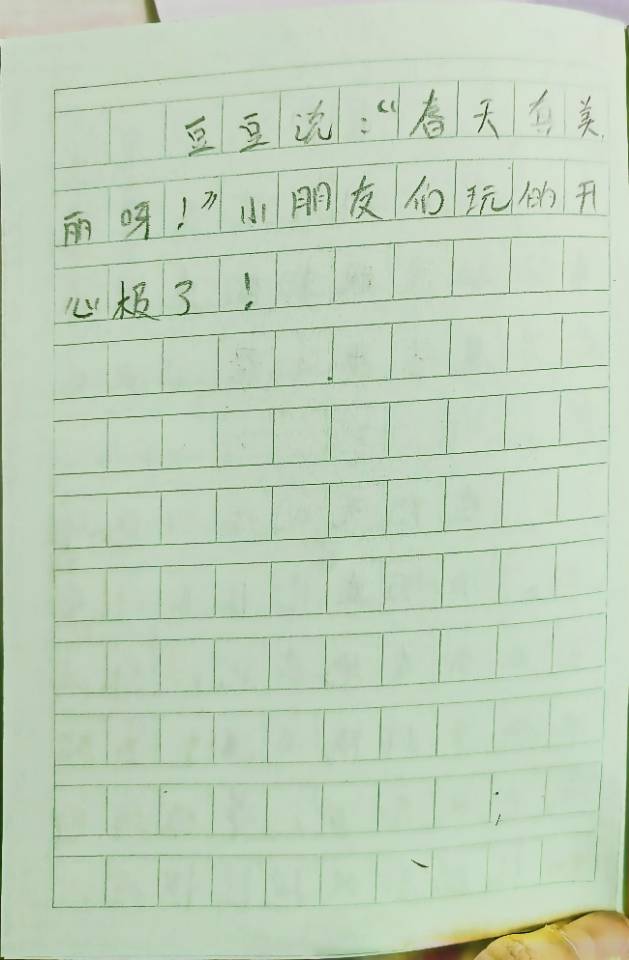 豆豆说：“春天真美
丽呀！”小朋友们玩的开
心极了！